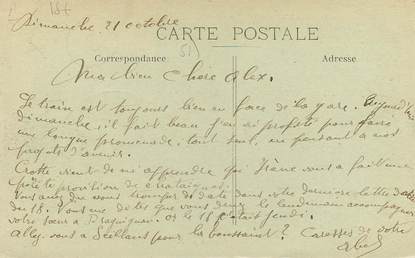 Dimanche, 21 octobre
CARTE POSTALE
Correspondance
Adresse
Ma bien chère Alex.
Le train est toujours bien en face de la gare. Aujourd'hui
dimanche, il fait beau j'en ai profité pour faire
une longue promenade, tout seul, en pensant à nos
projets d'avenir.
vient de m'apprendre que vous a fait une
petite provision de
Vous avez du vous tromper de date dans votre dernière lettre
du 18. Vous me dites que vous devez le lendemain accompagner
votre sœur à Draguignan. or le 18 était jeudi.
Allez vous à Seillans pour la toussaint ? Caresses de votre